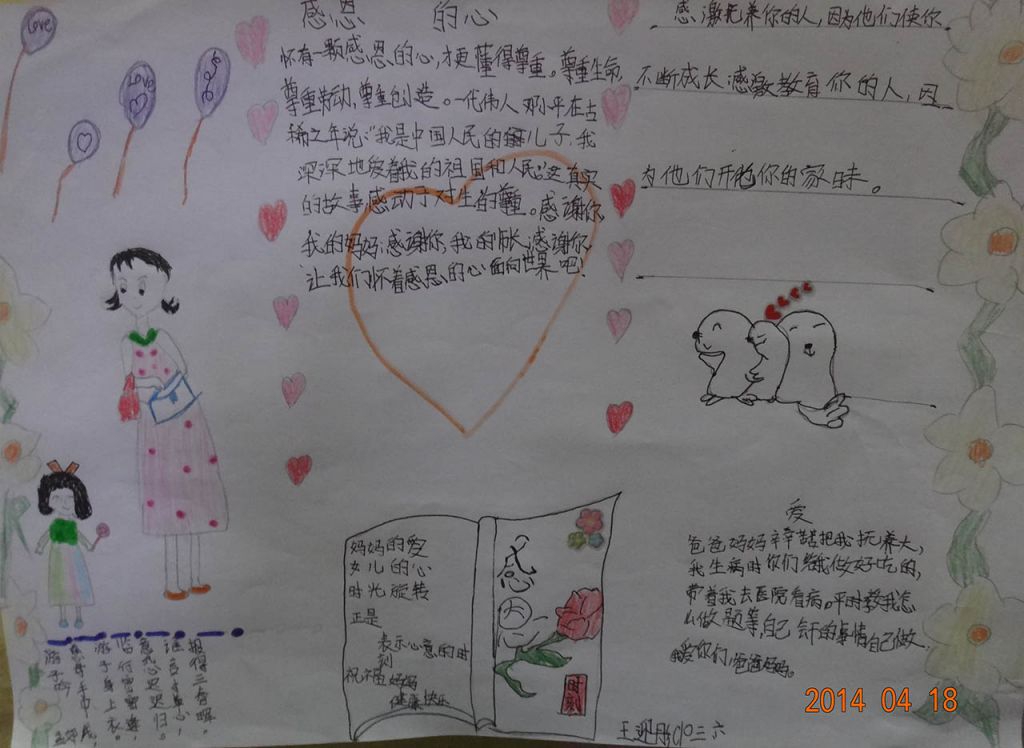 感恩 的心
怀有一颗感恩的心，才更懂得尊重。尊重生命，
尊重劳动，尊重创造。一代伟人邓小平在古
稀之年说："我是中国人民的儿子，我
深深地爱着我的祖国和人民"这真实
的故事感动了对生的尊重。感谢你，
我的妈妈；感谢你，我的师长；感谢你
让我们怀着感恩的心面向世界吧！
感激抚养你的人，因为他们使你
不断成长感激教育你的人，因
为他们开拖你的家昧。
Love
LOVE
妈妈的爱
女儿的心
时光旋转
正是
表示心意的时
刻
祝不管妈妈
健康快乐
感
恩
时刻
爱
爸爸妈妈辛辛苦苦把我抚养大，
我生病时你们给我做好吃的，
带着我去医院看病。平时教我怎
么做题等，自己会干的事情自己做
爱你们，爸爸妈妈。
游子吟
慈母手中线，
游子身上衣。
临行密密缝，
意恐迟迟归。
谁言寸草心，
报得三春晖。
三六
2014 04 18